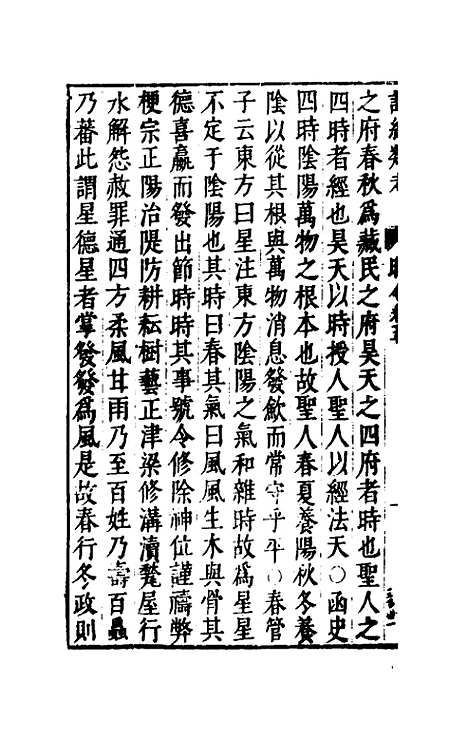 之府春秋爲藏民之府昊天之四府者時也聖人之
四時者經也昊天以時授人聖人以經法天○函史
四時陰陽萬物之根本也故聖人春夏養陽秋冬養
陰以從其根與萬物消息發歛而常守乎平○春管
子云東方曰星注東方陰陽之氣和雜時故爲星星
不定于陰陽也其時曰春其氣曰風風生木與骨其
德喜嬴而發出節時時其事號令修除神位謹禱弊
梗宗正陽治隄防耕耘樹藝正津梁修溝瀆甃屋行
水解怨赦罪通四方柔風甘雨乃至百姓乃壽百蟲
乃蕃此謂星德星者掌發發爲風是故春行冬政則